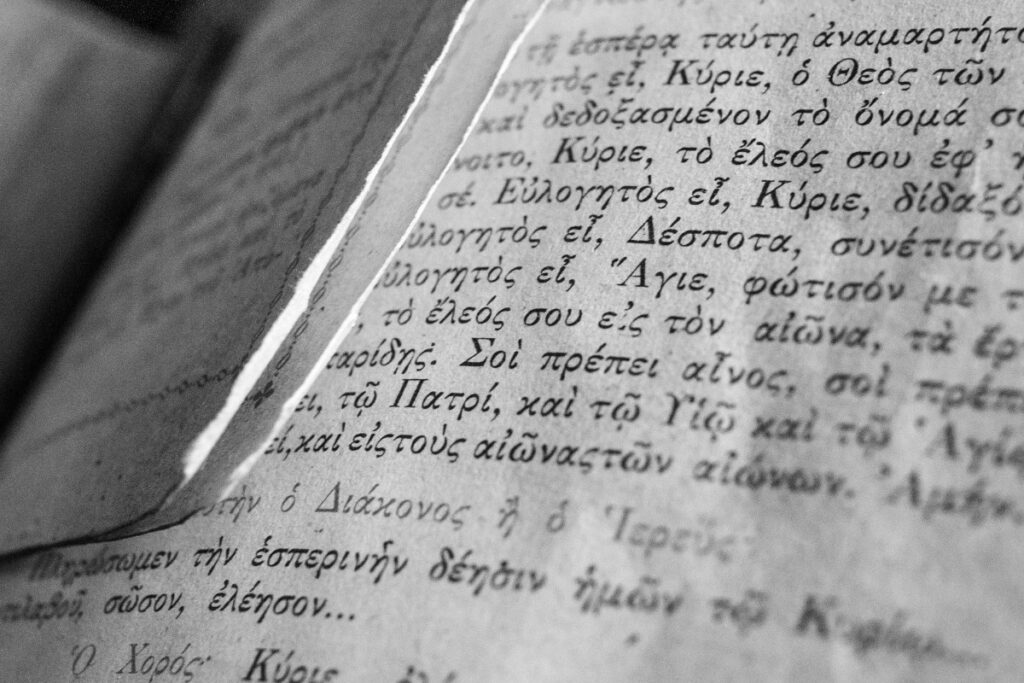 τῇ ἑσπέρᾳ ταύτῃ ἀναμαρτήτο
ογητὸς εἶ, Κύριε, ὁ Θεὸς τῶν
καὶ δεδοξασμένον τὸ ὄνομά σο
νοιτο, Κύριε, τὸ ἔλεός σου ἐφ'
σέ. Εὐλογητὸς εἶ, Κύριε, δίδαξό
ὐλογητὸς εἶ, Δέσποτα, συνέτισόν
ὐλογητὸς εἶ, Ἅγιε, φώτισόν με τ
, τὸ ἔλεός σου εἰς τὸν αἰῶνα, τὰ ἔρ
παρίδῃς. Σοὶ πρέπει αἶνος, σοὶ πρέπ
ει, τῷ Πατρί, καὶ τῷ Υἱῷ καὶ τῷ Ἁγίῳ
εί, καὶ εἰς τοὺς αἰῶνας τῶν αἰώνων. Ἀμήν.
τὴν ὁ Διάκονος ἢ ὁ Ἱερεύς·
Πληρώσωμεν τὴν ἑσπερινὴν δέησιν ἡμῶν τῷ Κυρίῳ...
τιλαβοῦ, σῶσον, ἐλέησον...
Ὁ Χορός· Κύριε